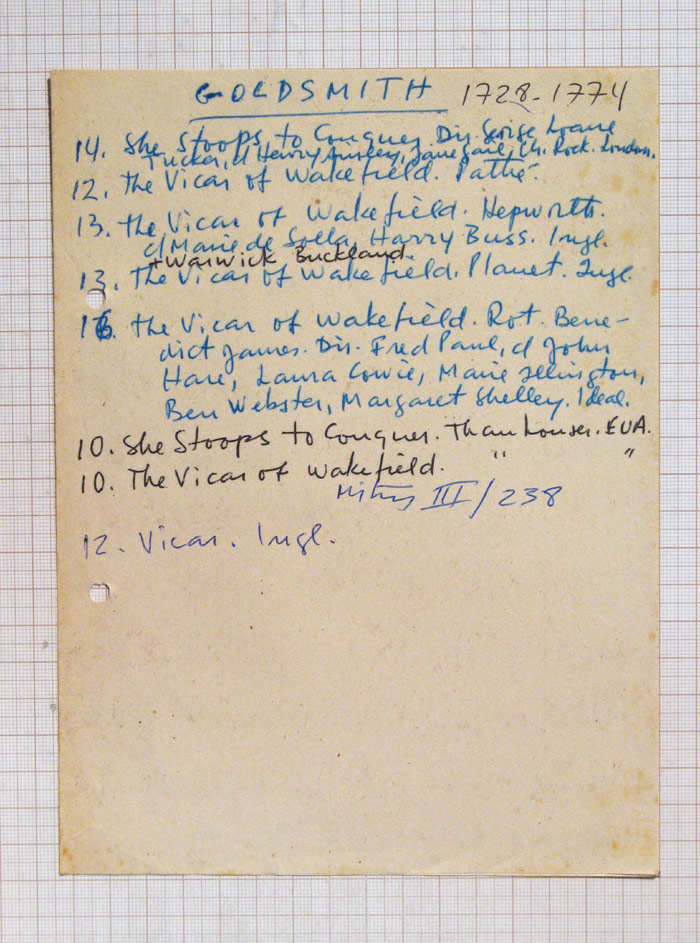 GOLDSMITH 1728-1774
14. She Stoops to Conquer. Dir. George Loane
Tucker, d Henry Ainley, Jane Gail, Ch. Rock. London.
12. The Vicar of Wakefield. Pathé.
13. The Vicar of Wakefield. Hepworth.
d Marie de Solla, Harry Buss. Ingl.
+ Warwick Buckland.
13. The Vicar of Wakefield. Planet. Ingl.
16. The Vicar of Wakefield. Rot. Bene-
dict James. Dir. Fred Paul, d John
Hare, Laura Cowie, Marie Illington,
Ben Webster, Margaret Shelley. Ideal.
10. She Stoops to Conquer. Thanhouser. EUA.
10. The Vicar of Wakefield. " "
III/238
12. Vicar. Ingl.